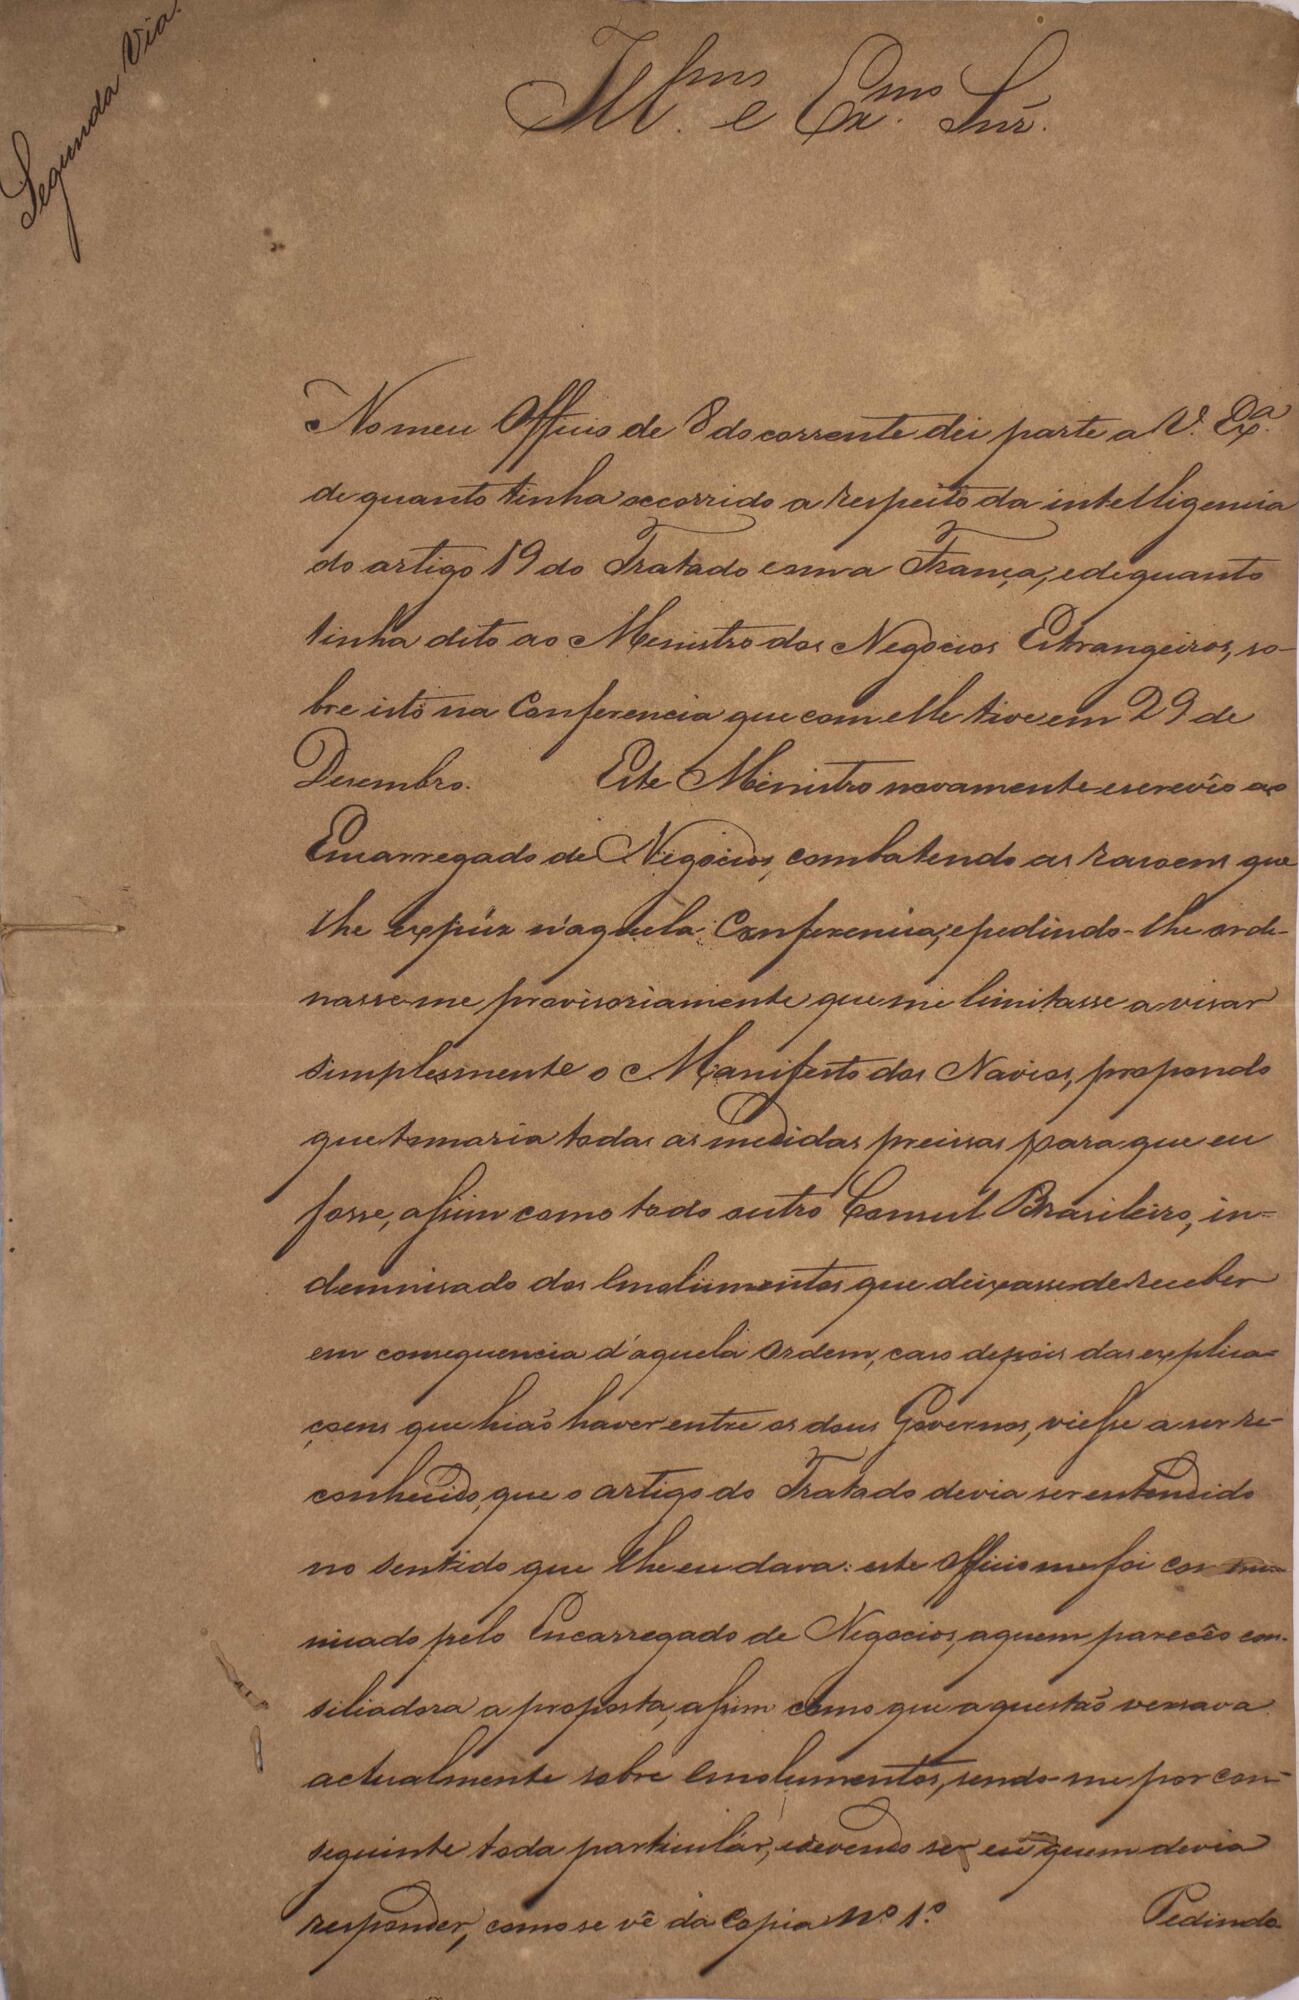 Segunda Via.
Ill.mo e Ex.mo Snr.
No meu Officio de 8 do corrente dei parte a V. Ex.ª
de quanto tinha occorrido a respeito da intelligencia
do artigo 19 do Tratado com a França, e de quanto
tinha dito ao Menistro dos Negocios Estrangeiros, so-
bre isto na Conferencia que com elle tive em 29 de
Desembro. Este Ministro novamente escrevêo ao
Encarregado de Negocios, combatendo as rasoens que
lhe expúz n'aquela Conferencia, e pedindo-lhe orde-
nasse-me provisoriamente que me limitasse a visar
simplesmente o Manifesto dos Navios, propondo
que tomaria todas as medidas precisas para que eu
fosse, assim como todo outro Consul Brasileiro, in-
demnisado dos Emolumentos que deixasse de receber
em consequencia d'aquela Ordem, caso depois das explica-
çoens que hião haver entre os dous Governos, viesse a ser re-
conhecido, que o artigo do Tratado devia ser entendido
no sentido que lhe eu dava: este Officio me foi commu-
nicado pelo Encarregado de Negocios, a quem parecêo con-
siliadora a proposta, assim como que a questão versava
actualmente sobre Emolumentos, sendo-me por con-
seguinte toda particular, e devendo ser eu quem devia
responder, como se vê da Copia Nº 1º Pedindo